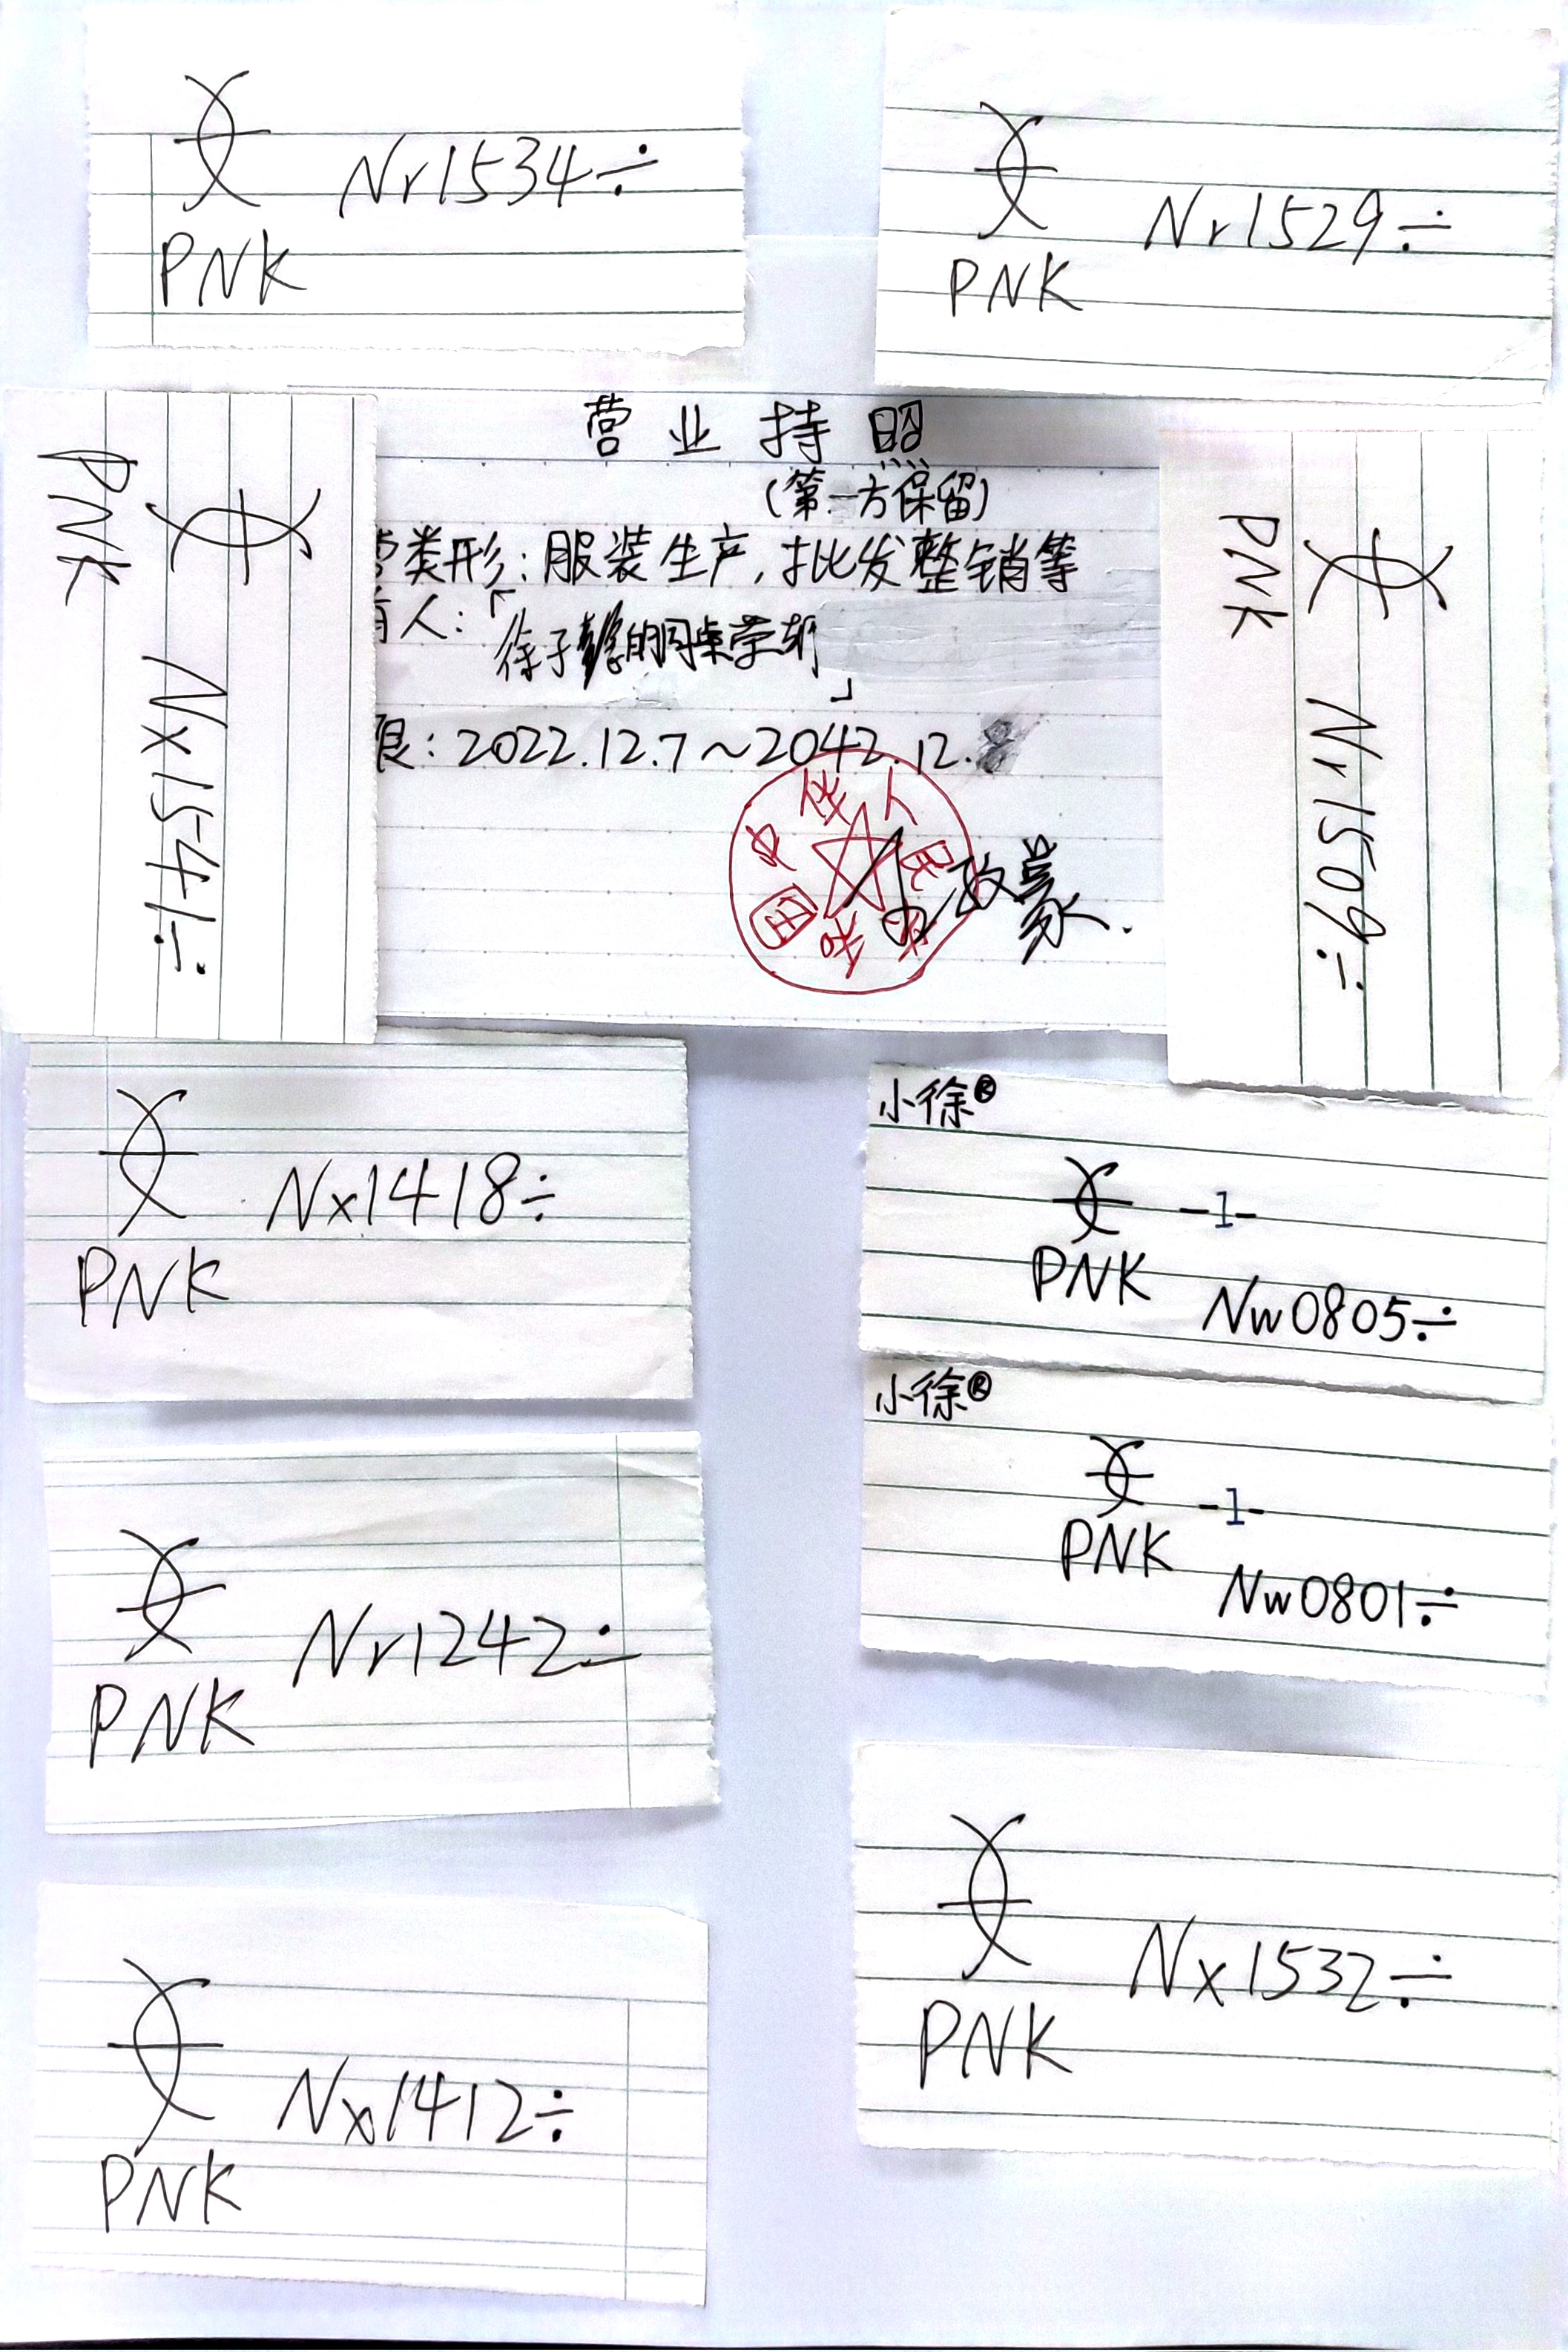 Nr1534÷
PNK
Nr1529÷
PNK
PNK
Nx1541÷
营业持照
(第一方保留)
类形:服装生产,批发整销等
人:
徐子的同桌荣轩
」
限:2022.12.7~2042.12.8
中华人民
国
PNK
Nr1509÷
Nx1418÷
PNK
小徐®
-1-
PNK
Nw0805÷
小徐®
-1-
PNK
Nw0801÷
Nr1242÷
PNK
Nx1532÷
PNK
Nx1412÷
PNK